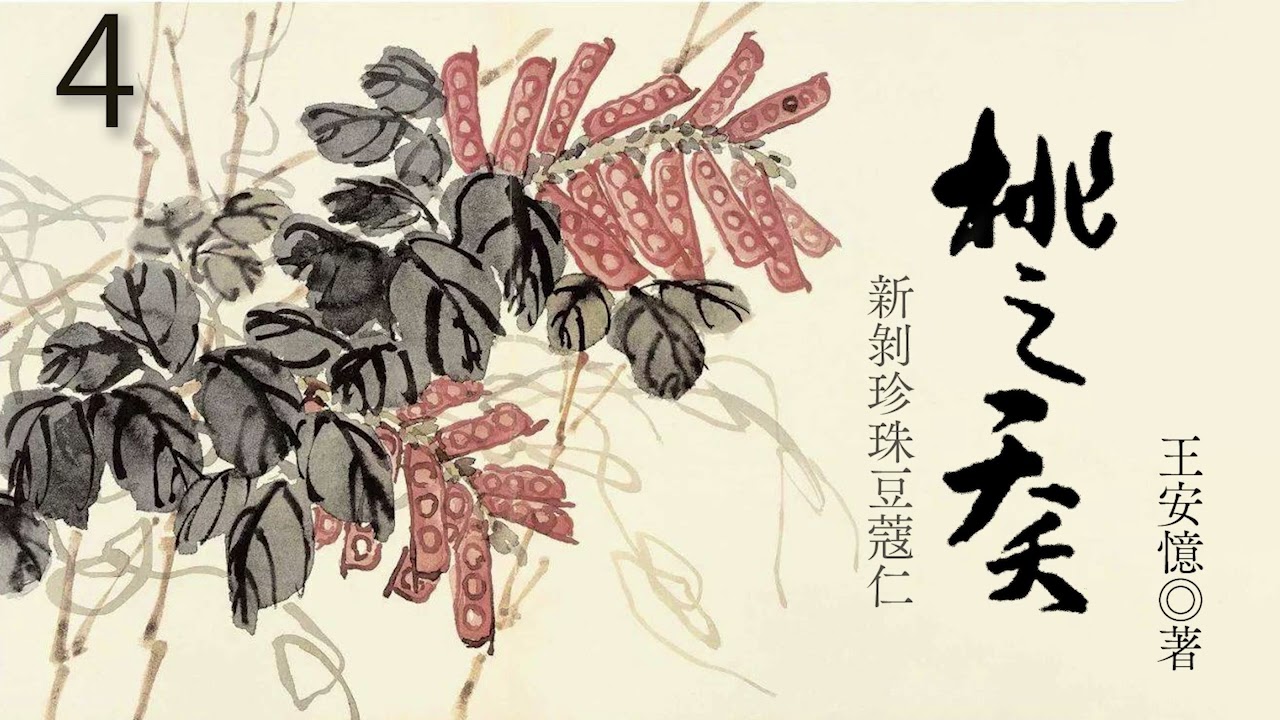 4
王安憶◎著
桃之夭夭
新剝珍珠豆蔻仁